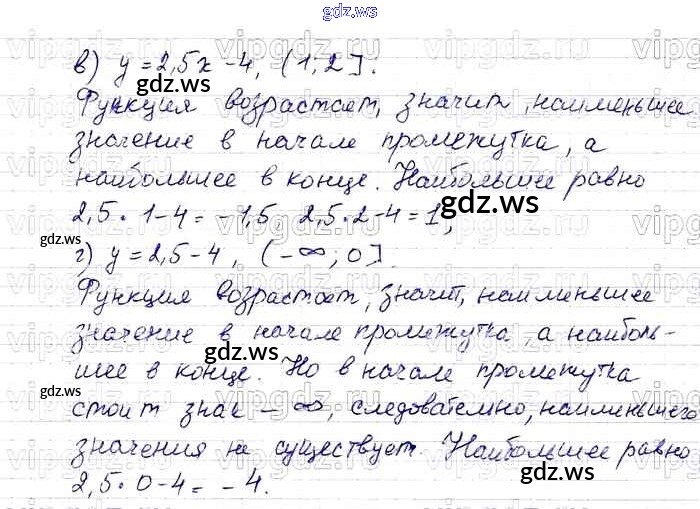 gdz.ws
в) y = 2,5x - 4, (1; 2].
Функция возрастает, значит, наименьшее
значение в начале промежутка, а
наибольшее в конце. Наибольшее равно
2,5 · 1 - 4 = -1,5, 2,5 · 2 - 4 = 1,
г) y = 2,5 - 4, (-∞; 0].
Функция возрастает, значит, наименьшее
значение в начале промежутка, а наиболь-
шее в конце. Но в начале промежутка
стоит знак - ∞, следовательно, наименьшего
значения не существует. Наибольшее равно
2,5 · 0 - 4 = -4.
gdz.ws
gdz.ws
gdz.ws
gdz.ws
gdz.ws
gdz.ws
vipgdz.ru